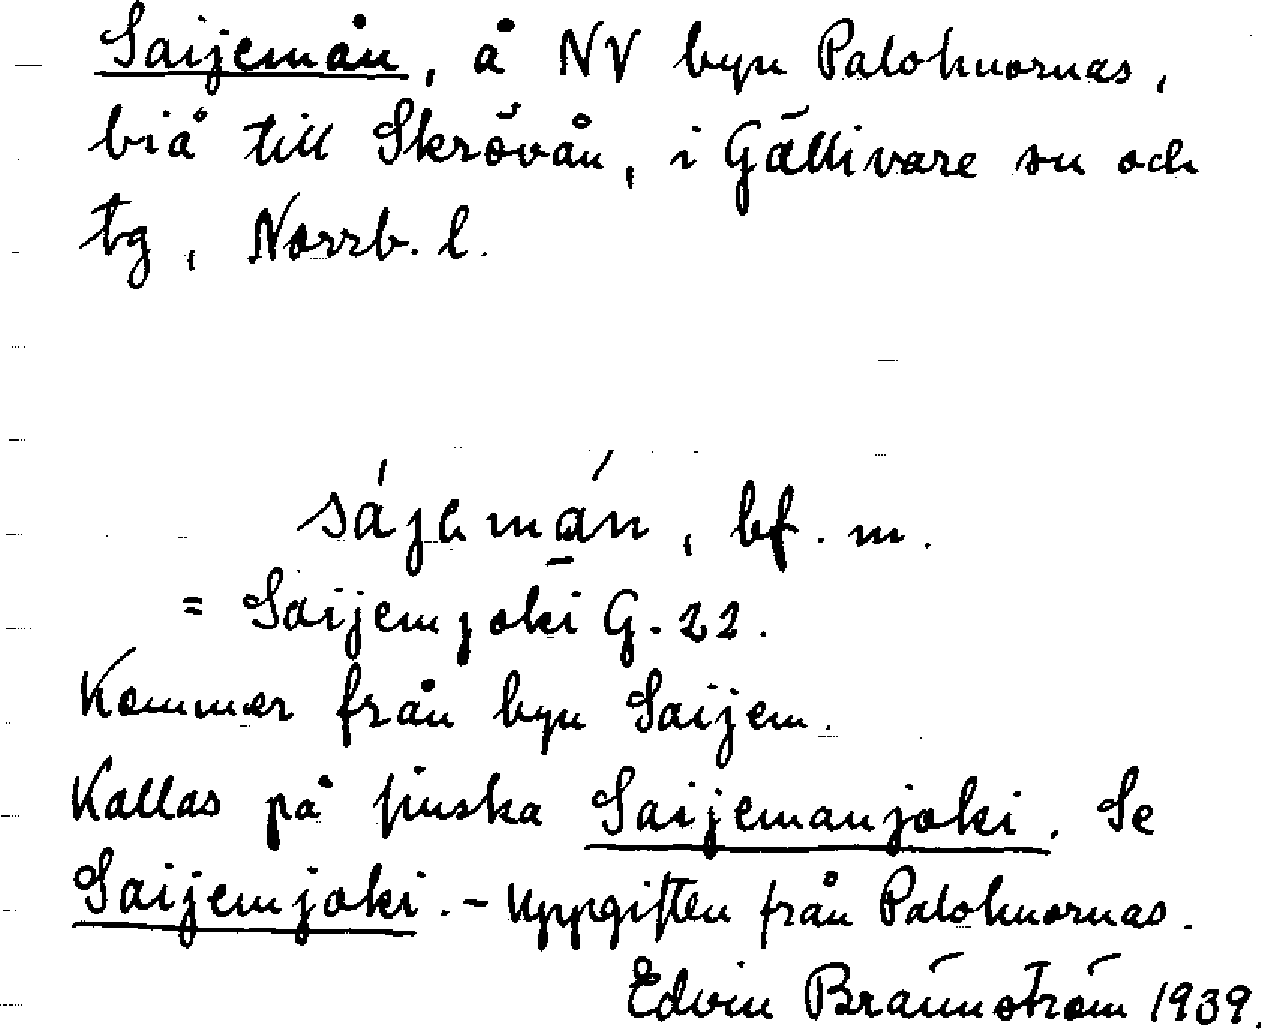 Saijemån, å NV byn Palohuornas,
biå till Skrövån, i Gällivare sn och
tg, Norrb. l.
sájemán, bf. m.
= Saijemjoki G. 22.
Kommer från byn Saijem.
Kallas på finska Saijemanjoki. Se
Saijemjoki. - Uppgiften från Palohuornas.
Edvin Brännström 1939.